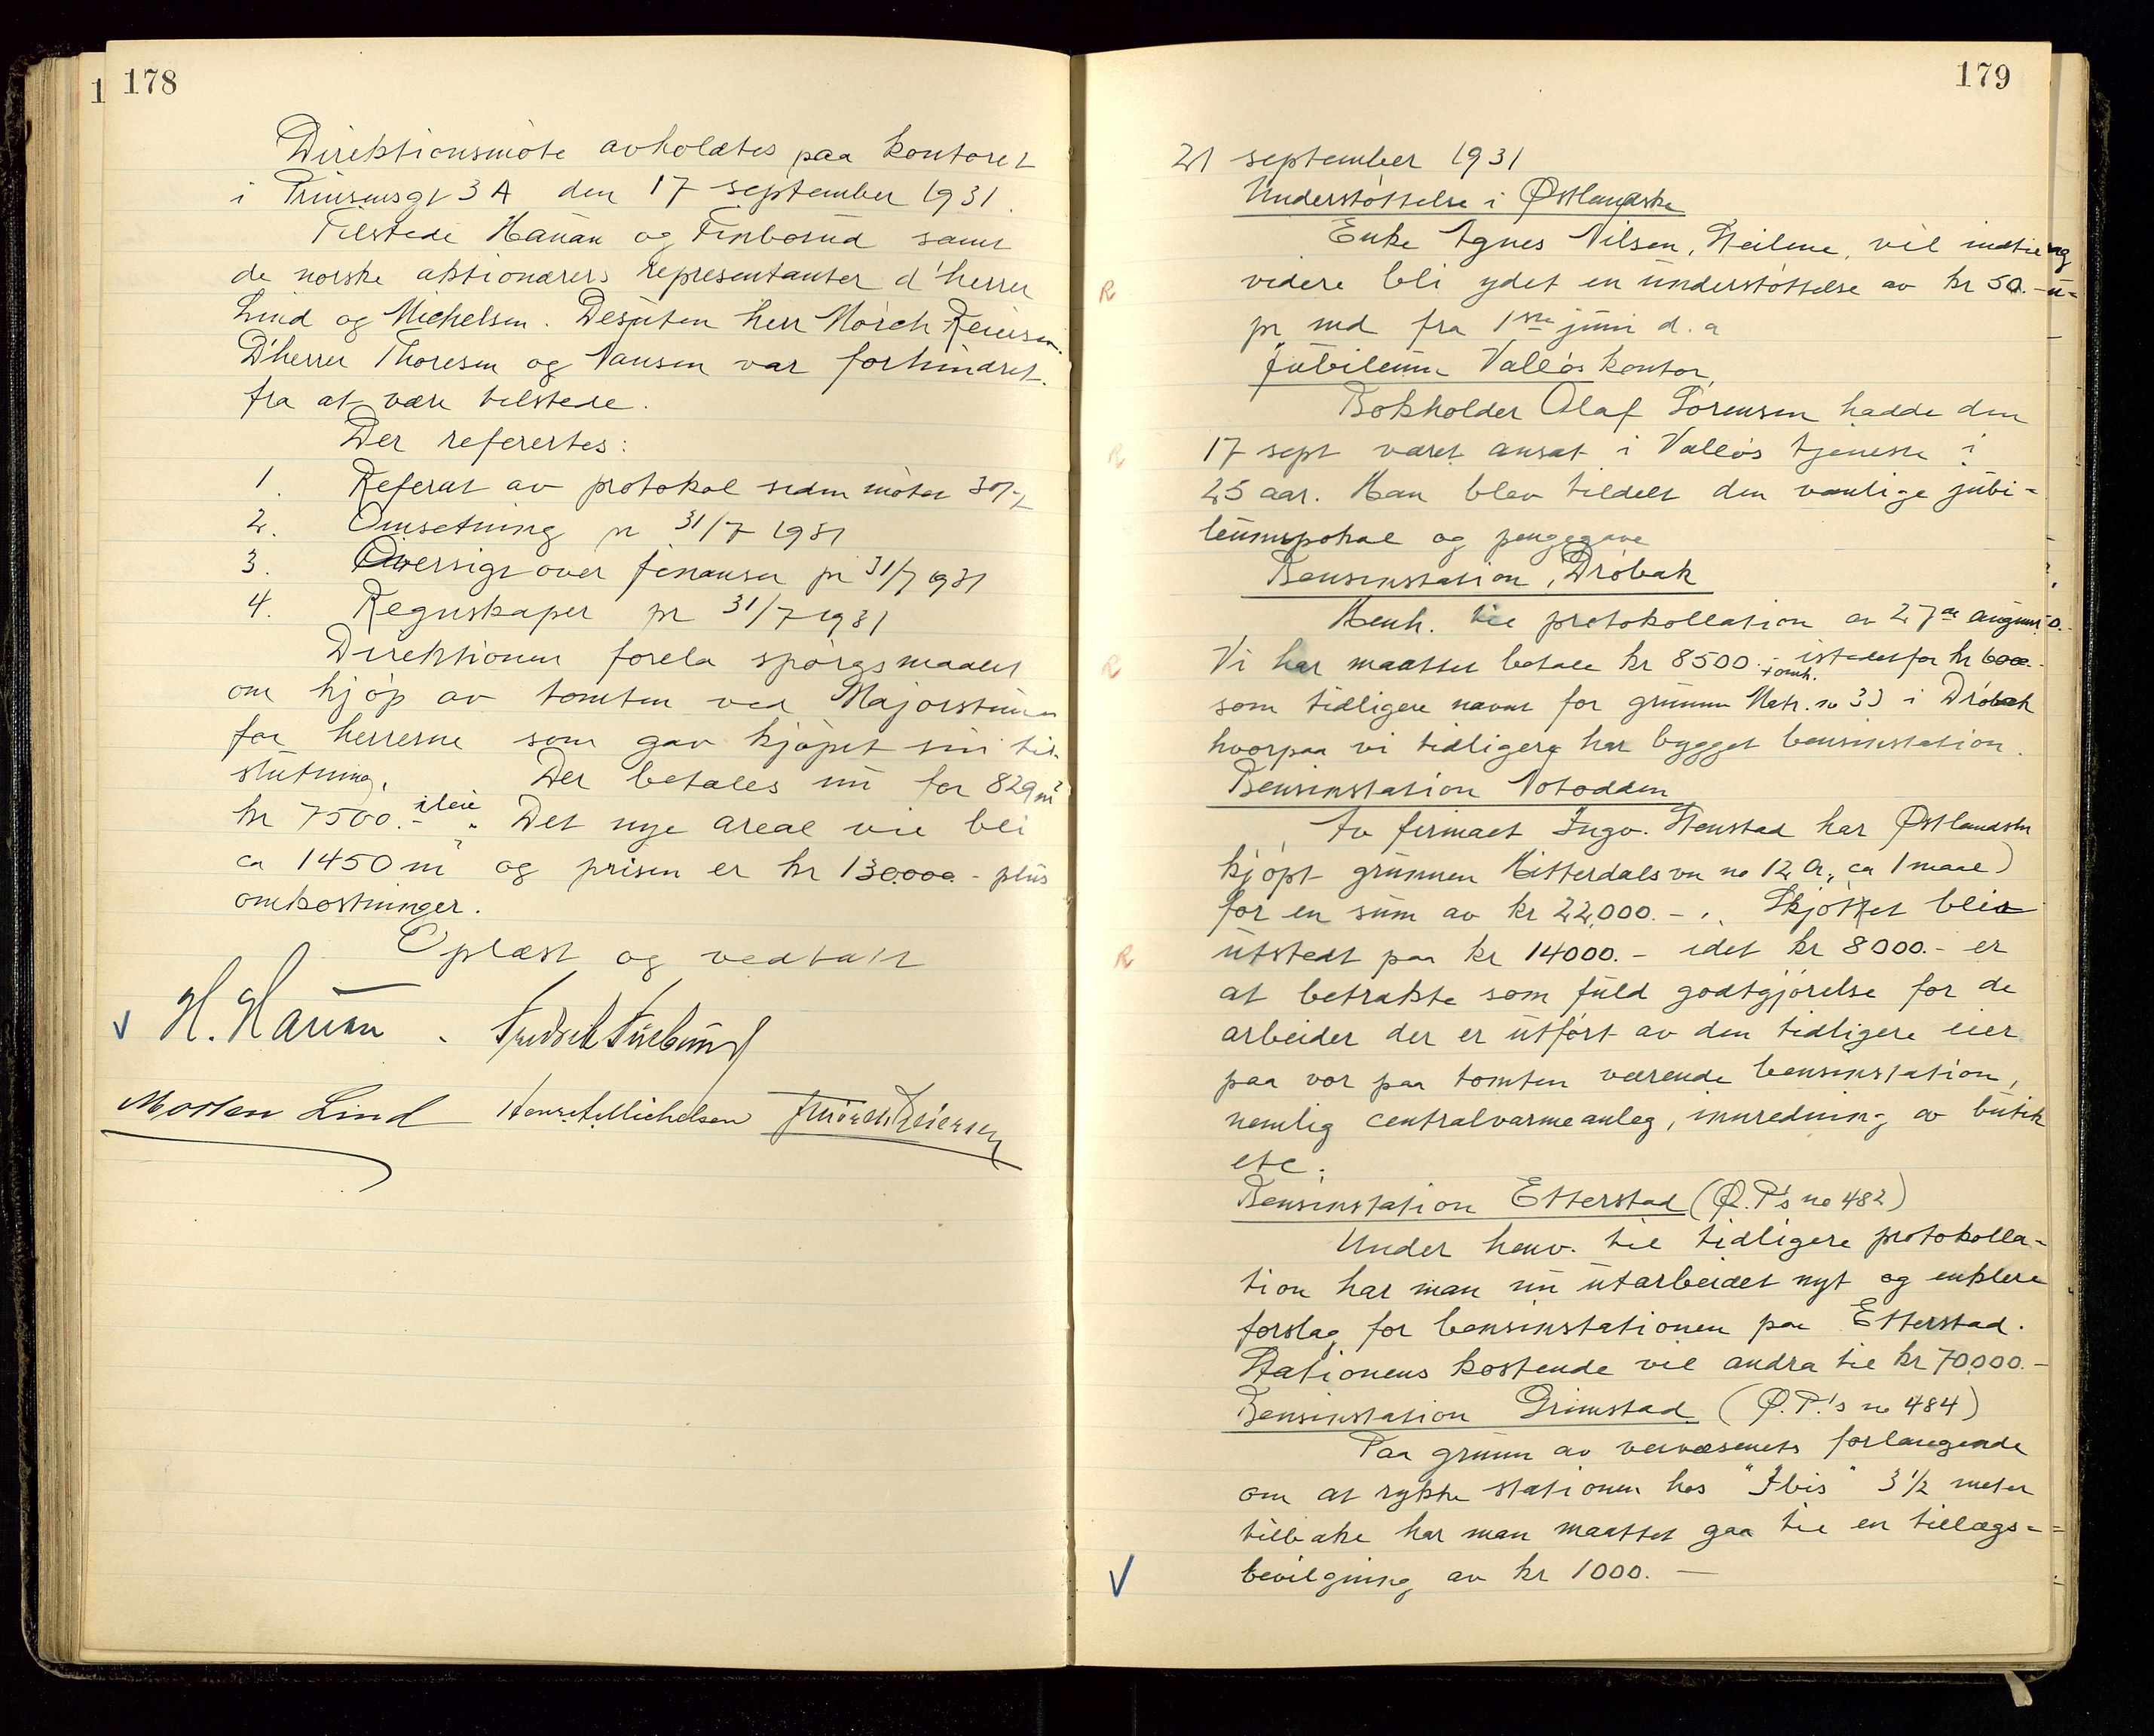 178
Direktionsmöte avholdtes paa kontoret
i Prinsensgt 3 A den 17 september 1931.
Tilstede Hanan og Finborud samt
de norske aktionærers representanter d'herrer
Lind og Michelsen. Desuten herr Mörch-Reiersen.
D'herrer Thoresen og Nansen var forhindret
fra at være tilstede.
Der referertes:
1. Referat av protokol siden mötet 30/7
2. Omsetning pr 31/7 1931
3. Oversigt over finanser pr 31/7 1931
4. Regnskaper pr 31/7 1931
Direktionen forela spörgsmaalet
om kjöp av tomten ved Majorstuen
for herrerne som gav kjöpet sin til-
slutning. Der betales nu for 829 m²
kr 7500.- i leie. Det nye areal vil bli
ca 1450 m² og prisen er kr 130.000 - plus
omkostninger.
Oplæst og vedtatt
H. Hanan
Morten Lind Michelsen Mörch Reiersen
179
21 september 1931
Understöttelse i Östlandske
Enke Agnes Nilsen, Steilene, vil indtil
videre bli ydet en understöttelse av kr 50.-
pr md fra 1ste juni d.a
Jubileum Vallös kontor
Bokholder Olaf Sörensen hadde den
17 sept været ansat i Vallös tjeneste i
25 aar. Han blev tildelt den vanlige jubi-
leumspokal og pengegave
Bensinstation, Dröbak
Henh. til protokollation av 27de august
Vi har maattet betale kr 8500.- + omk. istedetfor kr 6000.-
som tidligere nævnt for grunnen Matr. no 33 i Dröbak
hvorpaa vi tidligere har bygget bensinstation.
Bensinstation Notodden
Av firmaet Ingv. Stenstad har Östlandske
kjöpt grunnen Hitterdalsvn no 12 a, ca 1 maal)
for en sum av kr 22,000.-. Skjötet blir
utstedt paa kr 14000.- idet kr 8000.- er
at betrakte som fuld godtgjörelse for de
arbeider der er utfört av den tidligere eier
paa vor paa tomten værende bensinstation,
nemlig centralvarmeanlæg, innredning av butik
etc.
Bensinstation Etterstad (Ö.P.'s no 482)
Under henv. til tidligere protokolla-
tion har man nu utarbeidet nyt og enklere
forslag for bensinstationen paa Etterstad.
Stationens kostende vil andra til kr 70.000.-
Bensinstation Grimstad (Ö.P.'s no 484)
Paa grunn av veivæsenets forlangende
om at rykke stationen hos "Ibis" 3 1/2 meter
tilbake har man maattet gaa til en tillægs-
bevilgning av kr 1000.-